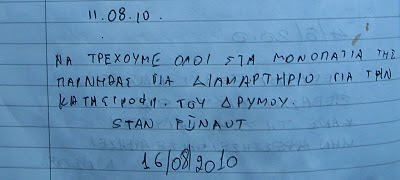 11.08.10.
ΝΑ ΤΡΕΧΟΥΜΕ ΟΛΟΙ ΣΤΑ ΜΟΝΟΠΑΤΙΑ ΤΗΣ
ΠΑΡΝΗΘΑΣ ΓΙΑ ΔΙΑΜΑΡΤΗΡΙΟ ΓΙΑ ΤΗΝ
ΚΑΤΗΣΤΡΟΦΗ. ΤΟΥ ΔΡΥΜΟΥ.
STAN
16/08/2010